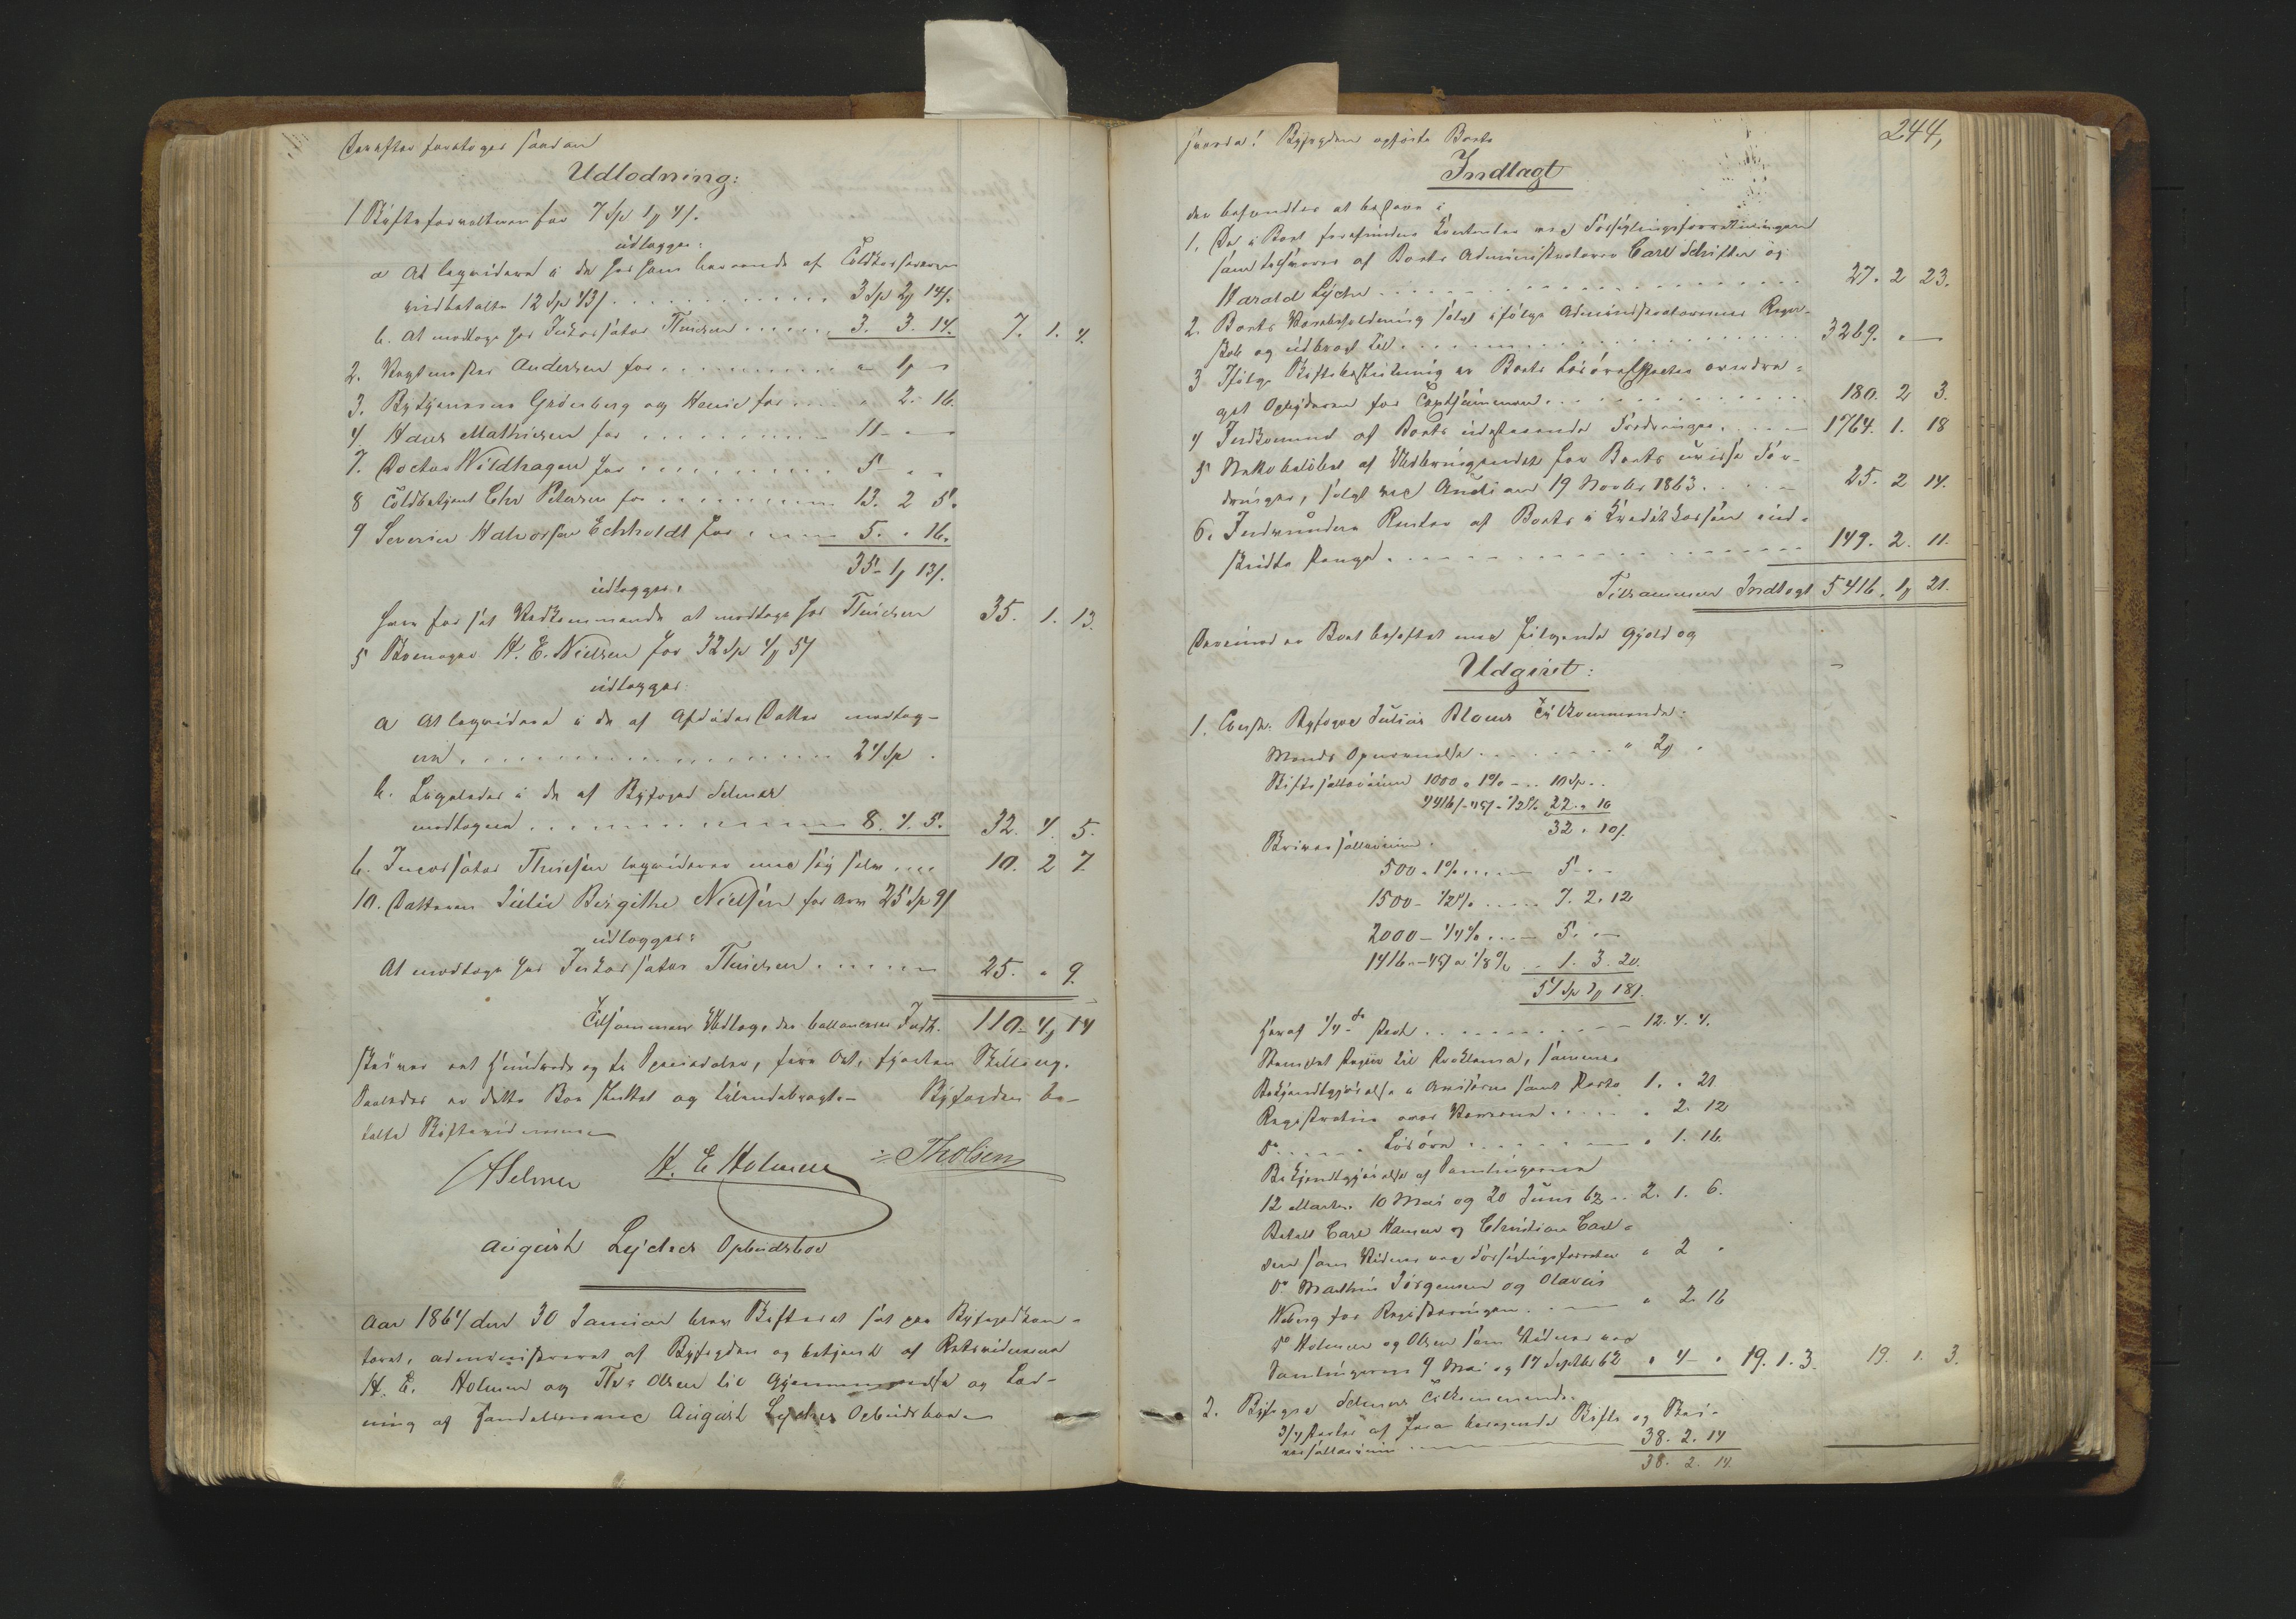 Derefter foretoges saadan
Udlodning:
1 Skifteforvalteren for 7 Sp 1 4/.
udlægges:
a At liqvidere i de hos ham beroende af Toldkasserer
indbetalte 12 Sp 43/ . . . 3 Sp 2 14/.
b. At modtage hos Inkassator Thuesen . . . 3. 3. 14. 7. 1. 4.
2. Vagtmester Andersen for . . . " 1 "
3. Bytjenerne Grönberg og Henie for . . . " 2. 16.
4. Hans Mathiesen for . . . 11 - " -
7. Doctor Wildhagen for . . . 5 - " "
8 Toldbetjent Chr Petersen for . . . 13. 2 5.
9 Severin Halvorsen Echholdt for . . . 5. " 16.
35 - 1 13/.
udlægges:
hver for sit Vedkommende at modtage hos Thuesen 35. 1. 13.
5 Skomager H. E. Nielsen for 32 Sp 4 5/
udlægges:
a At liqvidere i de af Afdödes Datter modtag-
ne . . . 24 Sp.
b. Ligeledes i de af Byfoged Selmer
modtagne . . . 8. 4. 5. 32. 4. 5.
6. Incassator Thuesen liqviderer med sig selv . . . 10. 2 7.
10. Datteren Julie Birgithe Nielsen for Arv 25 Sp 9/
udlægges:
At modtage hos Inkassator Thuesen . . . 25. " 9.
Tilsammen Udlæg, der ballancerer Indt. 110 - 4 14
skriver et Hundrede og ti Speciedaler, fire Ort, fjorten Skilling.
Saaledes er dette Bo skiftet og tilendebragt. - Byfogden be-
talte Skiftevidnerne
Selmer H. E Holmen Th Olsen
August Lyches Opbudsbo
Aar 1864 den 30 Januar blev Skifteret sat paa Byfogedkon-
toret, administreret af Byfogden og betjent af Retsvidnerne
H. E. Holmen og Ths Olsen til Gjennemgaaelse og Lod-
ning af Handelsmand August Lyches Opbudsbo
244,
hvorda! Byfogden opförte Boets
Indtægt
der befandtes at bestaae i
1. De i Boet forefundne Contanter ved Forseglingsforretningen
som tilsvares af Boets Administratorer Carl Schiötter og
Harald Lyche . . . 27. 2 23.
2. Boets Varebeholdning solgt ifölge Administratorernes Regn-
skab og udbragt til . . . 3269. " -
3 Ifölge Skiftebeslutning er Boets Lösöreeffecter overdra-
get Opbyderen for Taxtsummen . . . 180. 2 3.
4 Indkommet af Boets udestaaende Fordringer . . . 1764. 1. 18
5 Nettobelöbet af Udbringendet for Boets uvisse For-
dringer, solgt ved Auction 19 Novbr 1863 . . . 25. 2 14.
6. Indvundne Renter af Boets i Kreditkassen ind-
skudte Penge . . . 149. 2. 11.
Tilsammen Indtægt 5416. 1 21.
Derimod er Boet beheftet med fölgende Gjeld og
Udgivt:
1. Const. Byfoged Julius Bloms Tilkommende:
Mænds Opnævnelse . . . " 2 "
Skiftesallarium 1000 a 1% - .. 10 Sp..
4416/-45/- 1/2% 22. " 10
32 " 10/.
Skriversallarium.
500 a 1% . . . 5 - - -
1500 - 1/2% . . . 7. 2. 12
2000 - 1/4% . . . 5. " -
1416 " - 45/ a 1/8% . . 1. 3. 20.
51 Sp 1 18/.
heraf 1/4de Part . . . 12. 4. 4.
Stemplet Papiir til Proklama, sammes
Bekjendtgjörelse i Aviserne samt Porto 1. " 21
Registratur over Varerne . . . " 2. 12
Do . . . Lösöre . . . " 1. 16.
Bekjendtgjörelse af Samlingerne
12 Marts, 10 Mai og 20 Juni 63 .. 2. 1. 6.
Betalt Carl Hansen og Christian Carl-
sen som Vidner ved Forseglingsforretn " 2 "
Do Mathis Jörgensen og Olavus
Wiborg for Registreringen . . . " 2. 16
Do Holmen og Olsen som Vidner ved
Samlingerne 9 Mai og 17 Septbr 62 " 4 - " 19. 1. 3. 19. 1. 3.
2. Byfoged Selmers Tilkommende.
3/4 Parter af foran beregnede Skifte og Skri-
versallarium . . . 38. 2. 14
38. 2. 14.